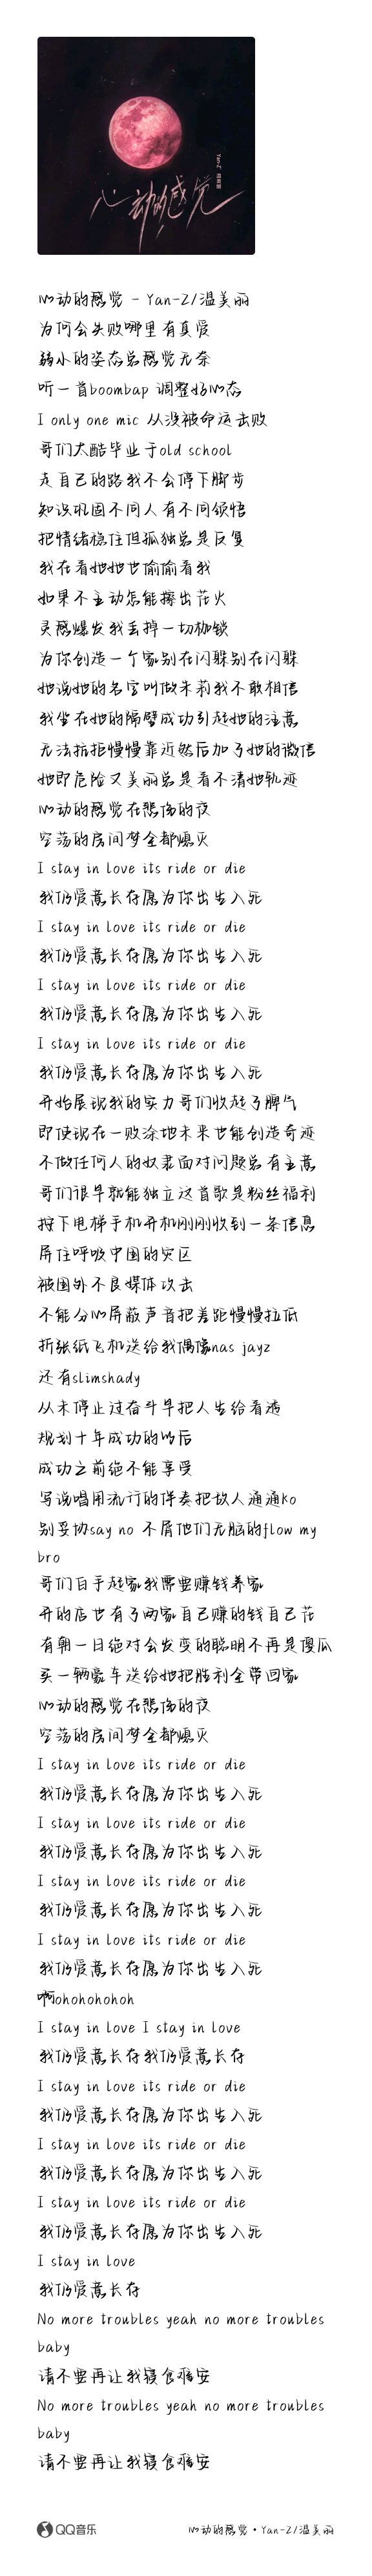 心动的感觉
Yan-Z 温美丽
心动的感觉 - Yan-Z/温美丽
为何会失败哪里有真爱
弱小的姿态总感觉无奈
听一首boombap 调整好心态
I only one mic 从没被命运击败
哥们太酷毕业于old school
走自己的路我不会停下脚步
知识巩固不同人有不同领悟
把情绪稳住但孤独总是反复
我在看她她也偷偷看我
如果不主动怎能擦出花火
灵感爆发我丢掉一切枷锁
为你创造一个家别在闪躲别在闪躲
她说她的名字叫做朱莉我不敢相信
我坐在她的隔壁成功引起她的注意
无法抗拒慢慢靠近然后加了她的微信
她即危险又美丽总是看不清她轨迹
心动的感觉在悲伤的夜
空荡的房间梦全都熄灭
I stay in love its ride or die
我仍爱意长存愿为你出生入死
I stay in love its ride or die
我仍爱意长存愿为你出生入死
I stay in love its ride or die
我仍爱意长存愿为你出生入死
I stay in love its ride or die
我仍爱意长存愿为你出生入死
开始展现我的实力哥们收起了脾气
即使现在一败涂地未来也能创造奇迹
不做任何人的奴隶面对问题总有主意
哥们很早就能独立这首歌是粉丝福利
按下电梯手机开机刚刚收到一条信息
屏住呼吸中国的灾区
被国外不良媒体攻击
不能分心屏蔽声音把差距慢慢拉低
折张纸飞机送给我偶像nas jayz
还有slimshady
从未停止过奋斗早把人生给看透
规划十年成功的以后
成功之前绝不能享受
写说唱用流行的伴奏把敌人通通ko
别妥协say no 不屑他们无脑的flow my
bro
哥们白手起家我需要赚钱养家
开的店也有了两家自己赚的钱自己花
有朝一日绝对会发变的聪明不再是傻瓜
买一辆豪车送给她把胜利全带回家
心动的感觉在悲伤的夜
空荡的房间梦全都熄灭
I stay in love its ride or die
我仍爱意长存愿为你出生入死
I stay in love its ride or die
我仍爱意长存愿为你出生入死
I stay in love its ride or die
我仍爱意长存愿为你出生入死
I stay in love its ride or die
我仍爱意长存愿为你出生入死
啊ohohohohoh
I stay in love I stay in love
我仍爱意长存我仍爱意长存
I stay in love its ride or die
我仍爱意长存愿为你出生入死
I stay in love its ride or die
我仍爱意长存愿为你出生入死
I stay in love its ride or die
我仍爱意长存愿为你出生入死
I stay in love
我仍爱意长存
No more troubles yeah no more troubles
baby
请不要再让我寝食难安
No more troubles yeah no more troubles
baby
请不要再让我寝食难安
QQ音乐
心动的感觉·Yan-Z/温美丽